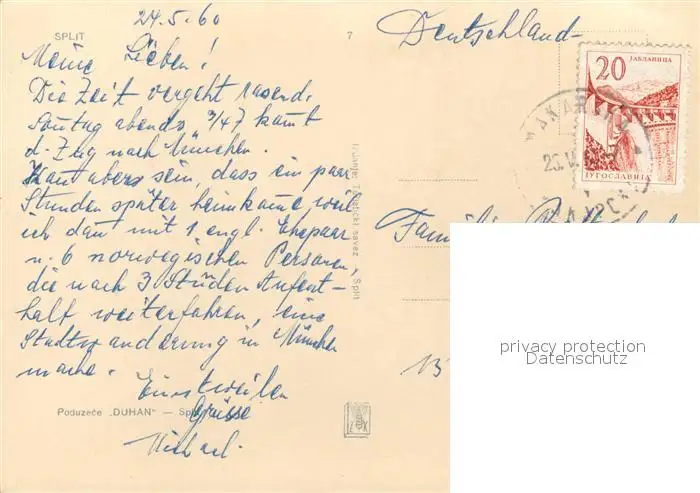 24.5.60
SPLIT
7
Deutschland
Meine Lieben!
Die Zeit vergeht rasend.
Sontag abends 3/47 kamt
d-Zug nach München.
Kann aber sein, dass ein paar
Stunden später heimkame weil
ich dann mit 1 engl. Ehepaar
u. 6 norwegischen Personen,
die nach 3 Stunden Aufent-
halt weiterfahren, eine
Stadtwanderung in München
mache.
Einstweilen
Grüsse
Michael.
Poduzeće „DUHAN" — Split
Turistički savez, Split
20
ЈАБЛАНИЦА
ЈУГОСЛАВИЈА
MAKARSKA
25.V.
Familie
13
privacy protection
Datenschutz